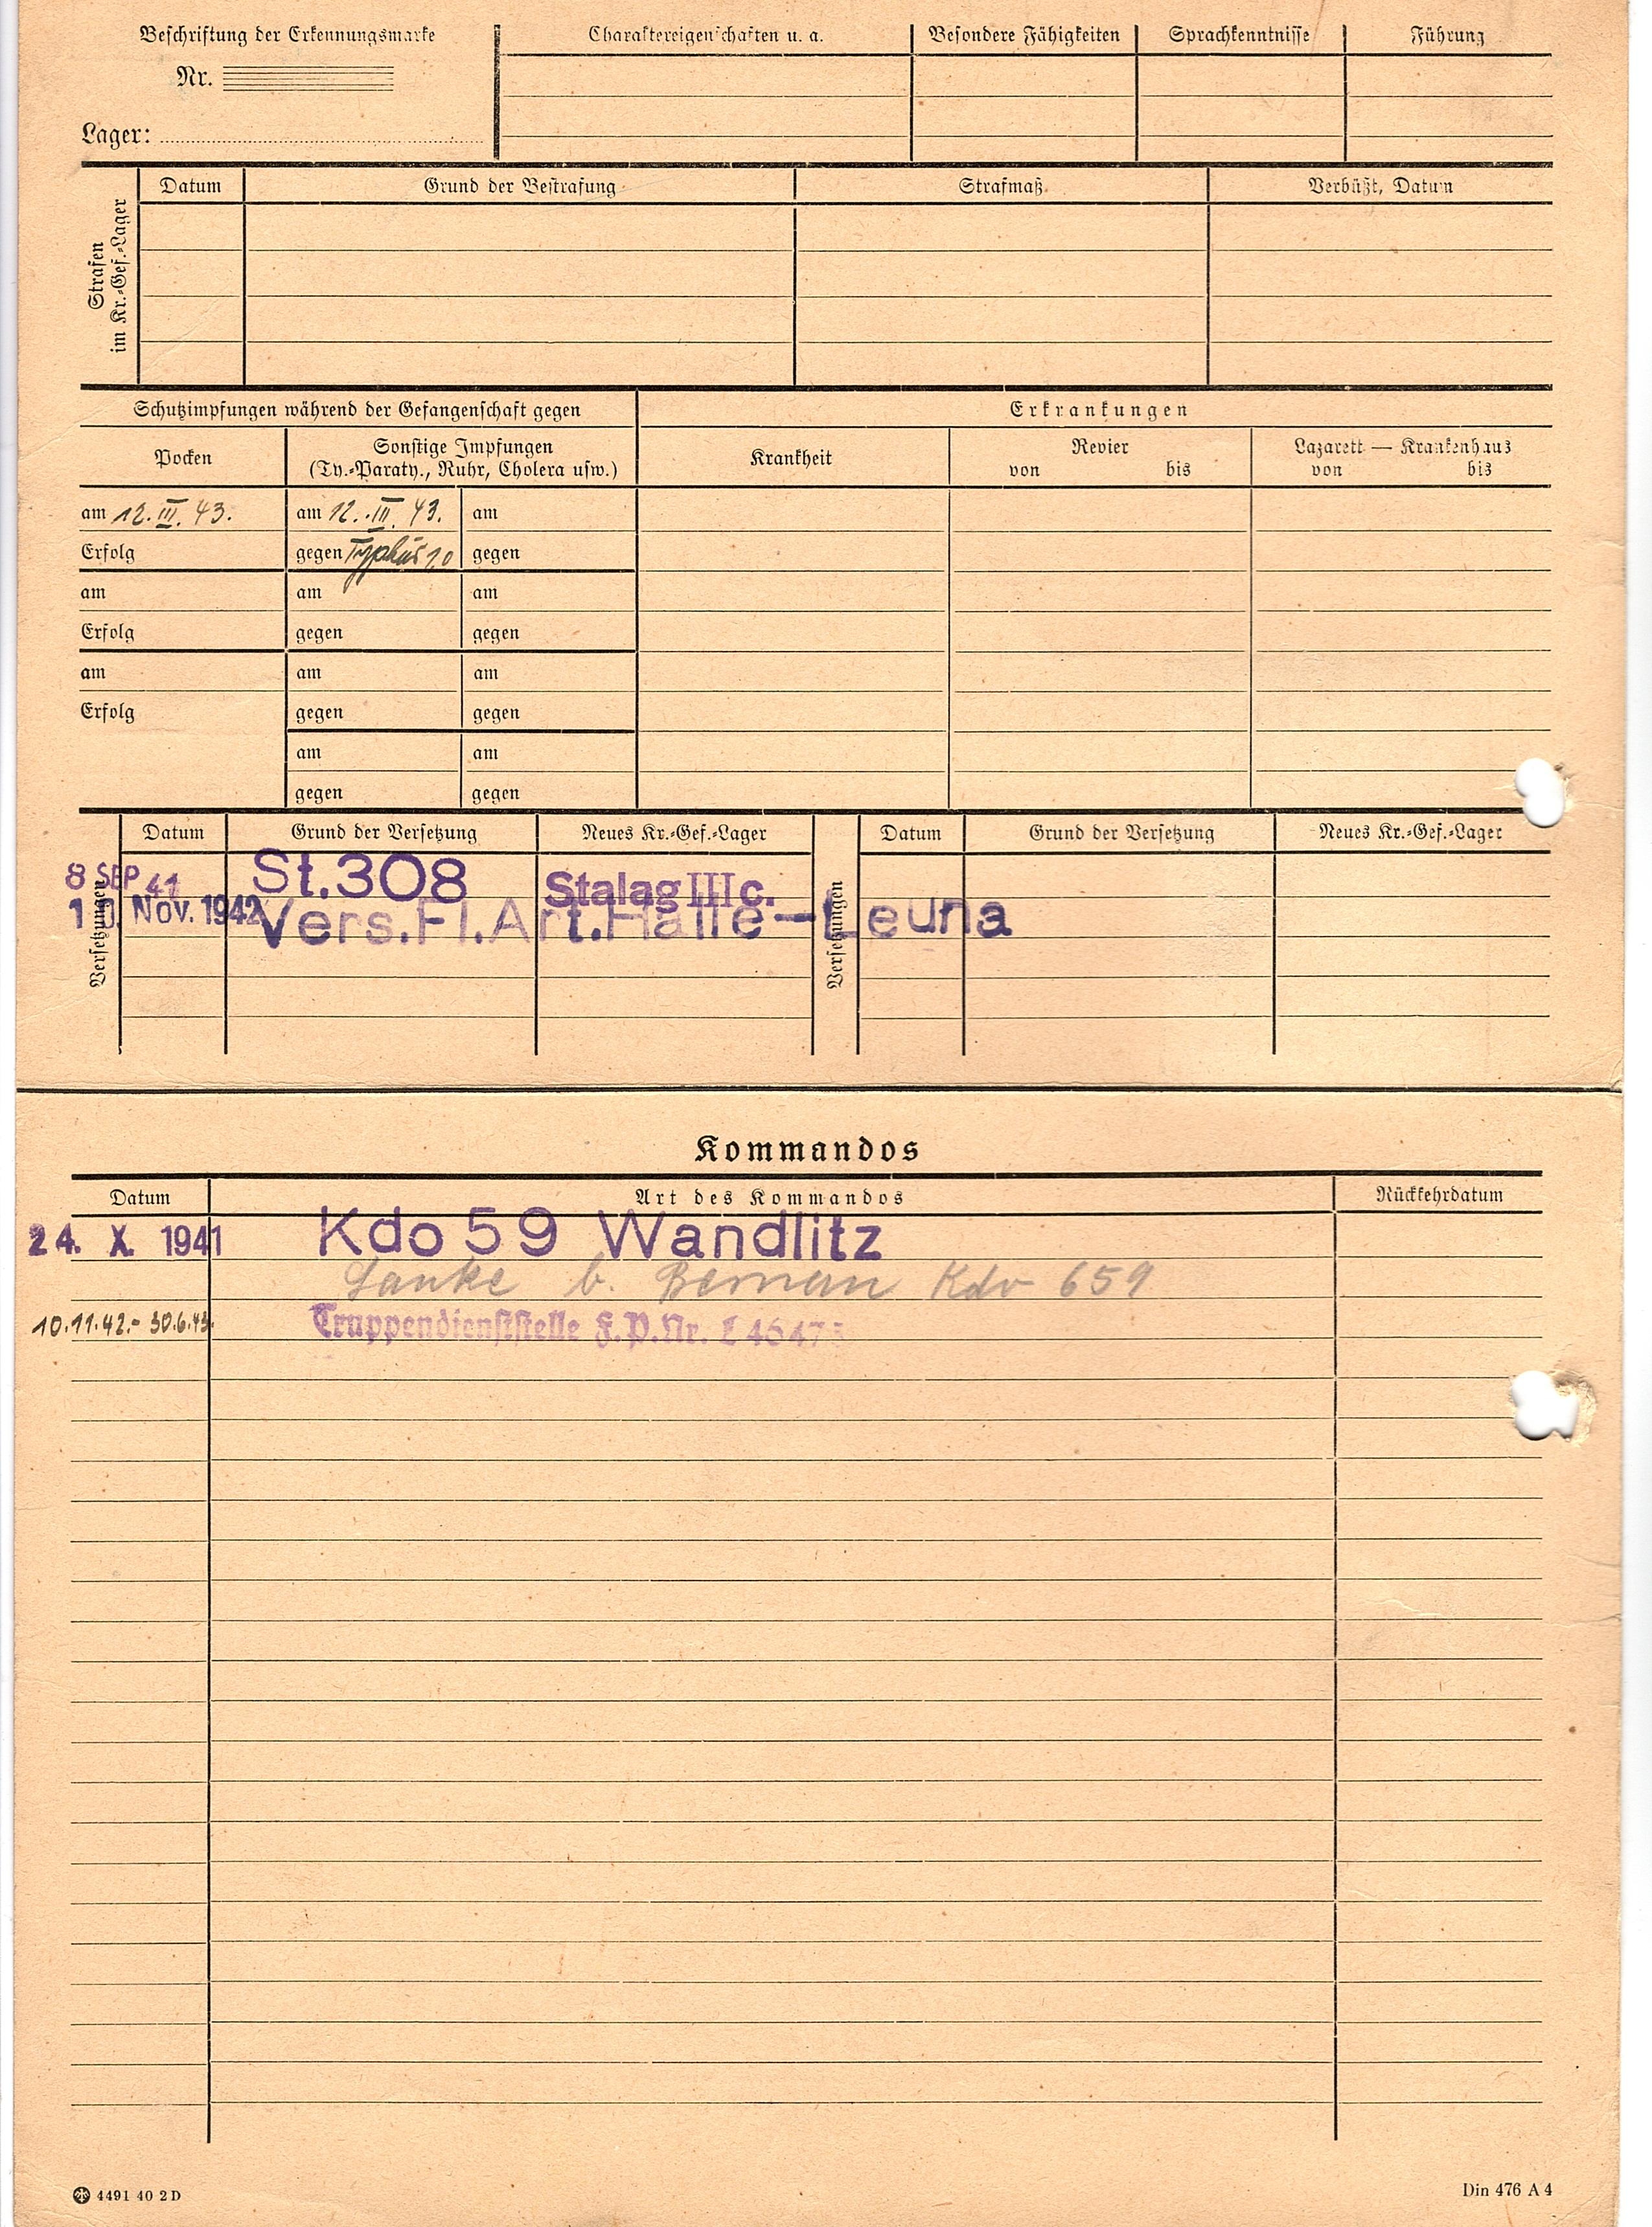 Beschriftung der Erkennungsmarke
Nr.
Lager:
Charaktereigenschaften u. a.
Besondere Fähigkeiten
Sprachkenntnisse
Führung
Strafen
im Kr.-Gef.-Lager
Datum
Grund der Bestrafung
Strafmaß
Verbüßt, Datum
Schutzimpfungen während der Gefangenschaft gegen
Erkrankungen
Pocken
Sonstige Impfungen
(Ty.-Paraty., Ruhr, Cholera usw.)
Krankheit
Revier
von bis
Lazarett — Krankenhaus
von bis
am 12. III. 43. am 12. III. 43. am
Erfolg gegen Typhus 1,0 gegen
am am am
Erfolg gegen gegen
am am am
Erfolg gegen gegen
am am
gegen gegen
Versetzungen
Datum Grund der Versetzung Neues Kr.-Gef.-Lager
Versetzungen
Datum Grund der Versetzung Neues Kr.-Gef.-Lager
8 SEP 41 St.308 Stalag III c.
10. NOV. 1942 Vers.Fl.Art.Halle-Leuna
Kommandos
Datum Art des Kommandos Rückkehrdatum
24. X. 1941 Kdo 59 Wandlitz
Lanke b. Bernau Kdo 659
10.11.42.- 30.6.43. Truppendienststelle F.P.Nr. L 46473
4491 40 2 D
Din 476 A 4